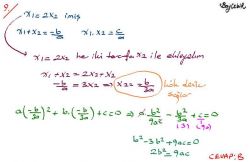 9.
x₁ = 2x₂ imiş
x₁+x₂ = -b/a x₁.x₂ = c/a
x₁ = 2x₂ her iki tarafa x₂ ile ekleyelim
x₁ + x₂ = 2x₂ + x₂
-b/a = 3x₂ ⇒ x₂ = -b/3a kök denk. sağlar
a(-b/3a)² + b.(-b/3a) + c = 0 ⇒ a.b²/9a² - b²/3a + c/1 = 0
(3) (9a)
b² - 3b² + 9ac = 0
2b² = 9ac
CEVAP: B